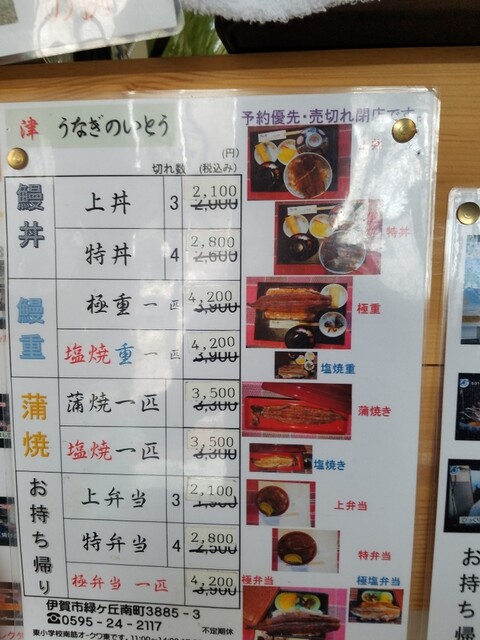 津 うなぎのいとう
予約優先・売切れ閉店です。
切れ数 (税込み)
(円)
鰻丼
上丼 3 2,100 2,000
特丼 4 2,800 2,600
鰻重
極重 一匹 4,200 3,900
塩焼重 一匹 4,200 3,900
蒲焼
蒲焼一匹 3,500 3,300
塩焼一匹 3,500 3,300
お持ち帰り
上弁当 3 2,100
特弁当 4 2,800
極弁当 一匹 4,200 3,900
特丼
極重
塩焼重
蒲焼き
塩焼き
上弁当
特弁当
極弁当
極塩弁当
伊賀市緑ヶ丘南町3885-3
☎0595-24-2117
不定期休
お持